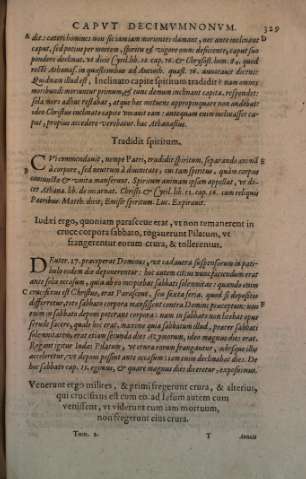 CAPVT DECIMVMNONVM. 329
A dit: cæteri homines non sic iam iam morientes clamant, nec ante inclinant
caput, sed potius per mortem, spiritu & vigore omni deficiente, caput suo
pondere declinat, vt dicit Cyril. lib. 12. cap. & Chrysost. hom. 84. quod
recte Athanas. in quæstionibus ad Antioch. quæst. docuit:
Quidnam illud est, Inclinato capite spiritum tradidit: nam omnes
moribundi moriuntur primum, & tum demum inclinant capita. respondet:
sola mors adhuc restabat, at quæ hac metuens appropinquare non audebat:
ideo Christus inclinato capite vocauit eam: antequam enim inclinasset ca-
put, propius accedere verebatur. hæc Athanasius.
Tradidit spiritum.
B CVi commendauit, nempe Patri, tradidit spiritum, separando animã B
à corpore, sed neutrum à diuinitate, cui tam spiritus, quàm corpus
coniuncta & vnita manserunt. Spiritum animam ipsam appellat, vt di-
cit Athana. lib. de incarnat. Christi & Cyril. lib. 12. cap. cum reliquis
Patribus. Matth. dicit, Emisit spiritum. Luc. Expirauit.
Iudæi ergo, quoniam parasceue erat, vt non remanerent in
cruce corpora sabbato, rogauerunt Pilatum, vt
frangerentur eorum crura, & tollerentur.
DEuter. præceperat Dominus, vt cadauera suspensorum in pati-
bulo eodem die deponerentur: hoc autem citius nunc faciendum erat
ante solis occasum, quia ab eo incipiebat sabbati solennitas: quando enim
C crucifixus est Christus, erat Parasceue, seu sexta feria. quod si depositio
differretur, tota sabbato corpora mansissent contra Domini præceptum: non
enim in sabbato deponi poterant corpora: nam in sabbatis non licebat opus
seruile facere, quale hoc erat, maxime quia sabbatum illud, præter sabbati
solennitatem, erat etiam secunda dies azymorum, ideo magnus dies erat.
Rogant igitur Iudæi Pilatum, vt crura eorum frangantur, vt
accelerentur, vt deponi possint ante occasum: iam enim declinabat dies. De
hoc sabbato cap. 11. egimus, & quare magnus dies dicetur, exposuimus.
Venerunt ergo milites, & primi fregerunt crura, & alterius,
qui crucifixus est cum eo. ad Iesum autem cum
venissent, vt viderunt eum iam mortuum,
non fregerunt eius crura.
Tom. 2. T Annuit